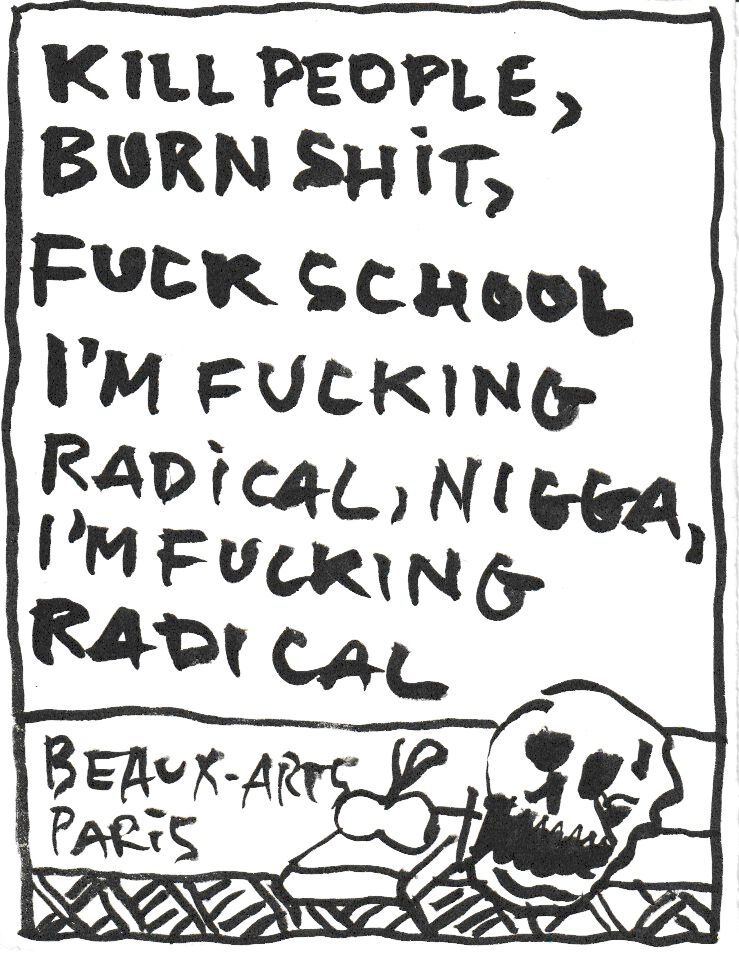 KILL PEOPLE,
BURN SHIT,
FUCK SCHOOL
I'M FUCKING
RADICAL, NIGGA,
I'M FUCKING
RADICAL
BEAUX-ARTS
PARIS